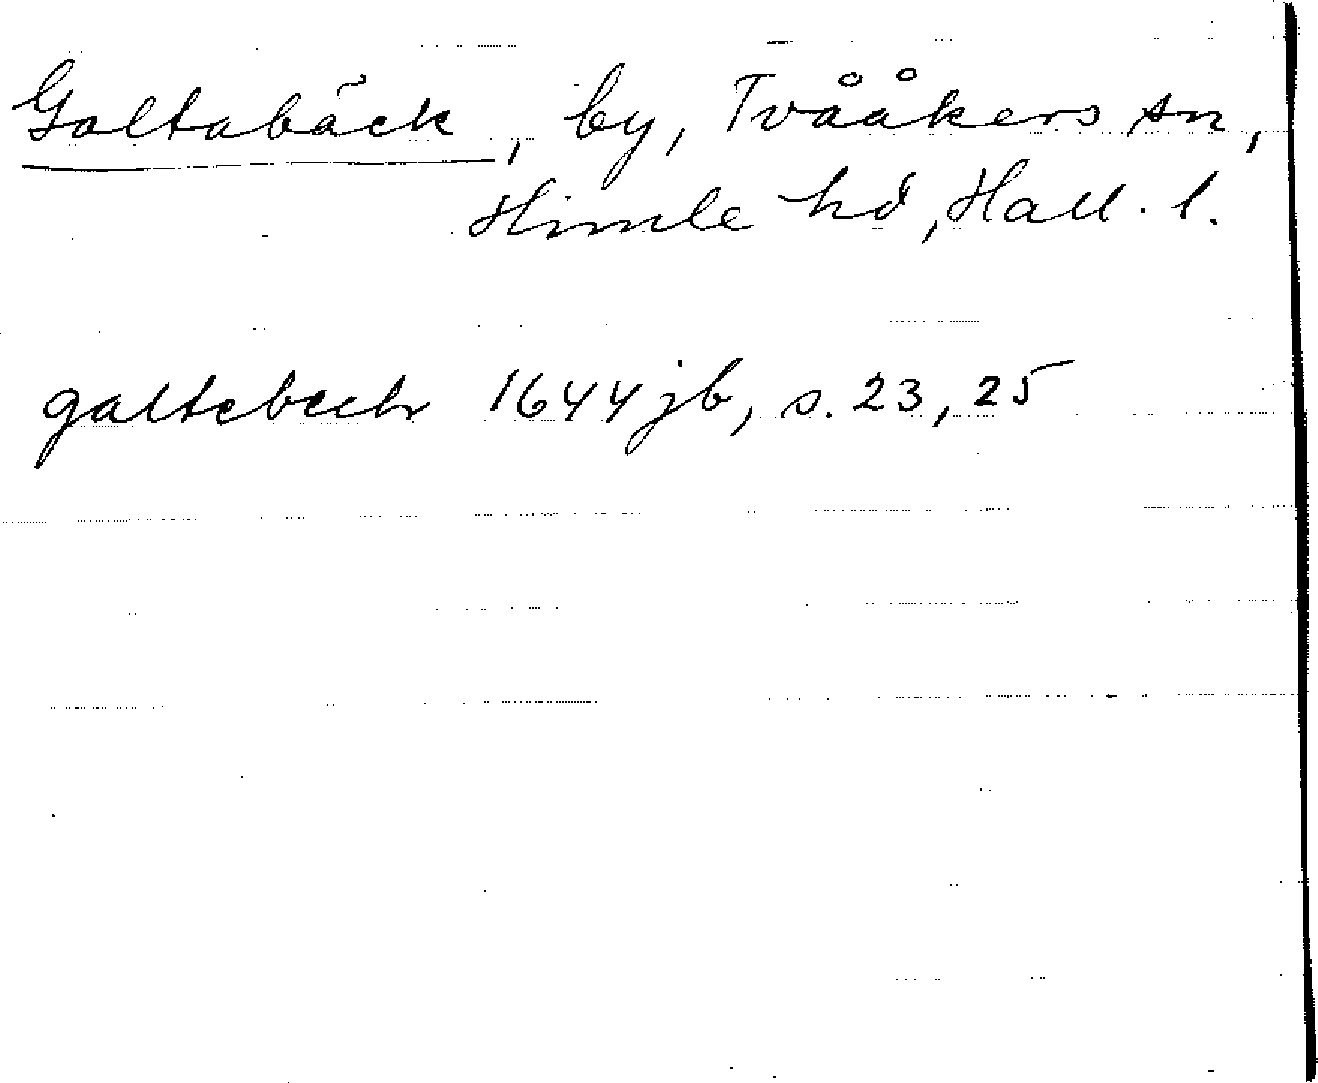 Galtabäck, by, Tvååkers sn,
Himle hd, Hall. l.
galtebech 1644 jb, s. 23, 25